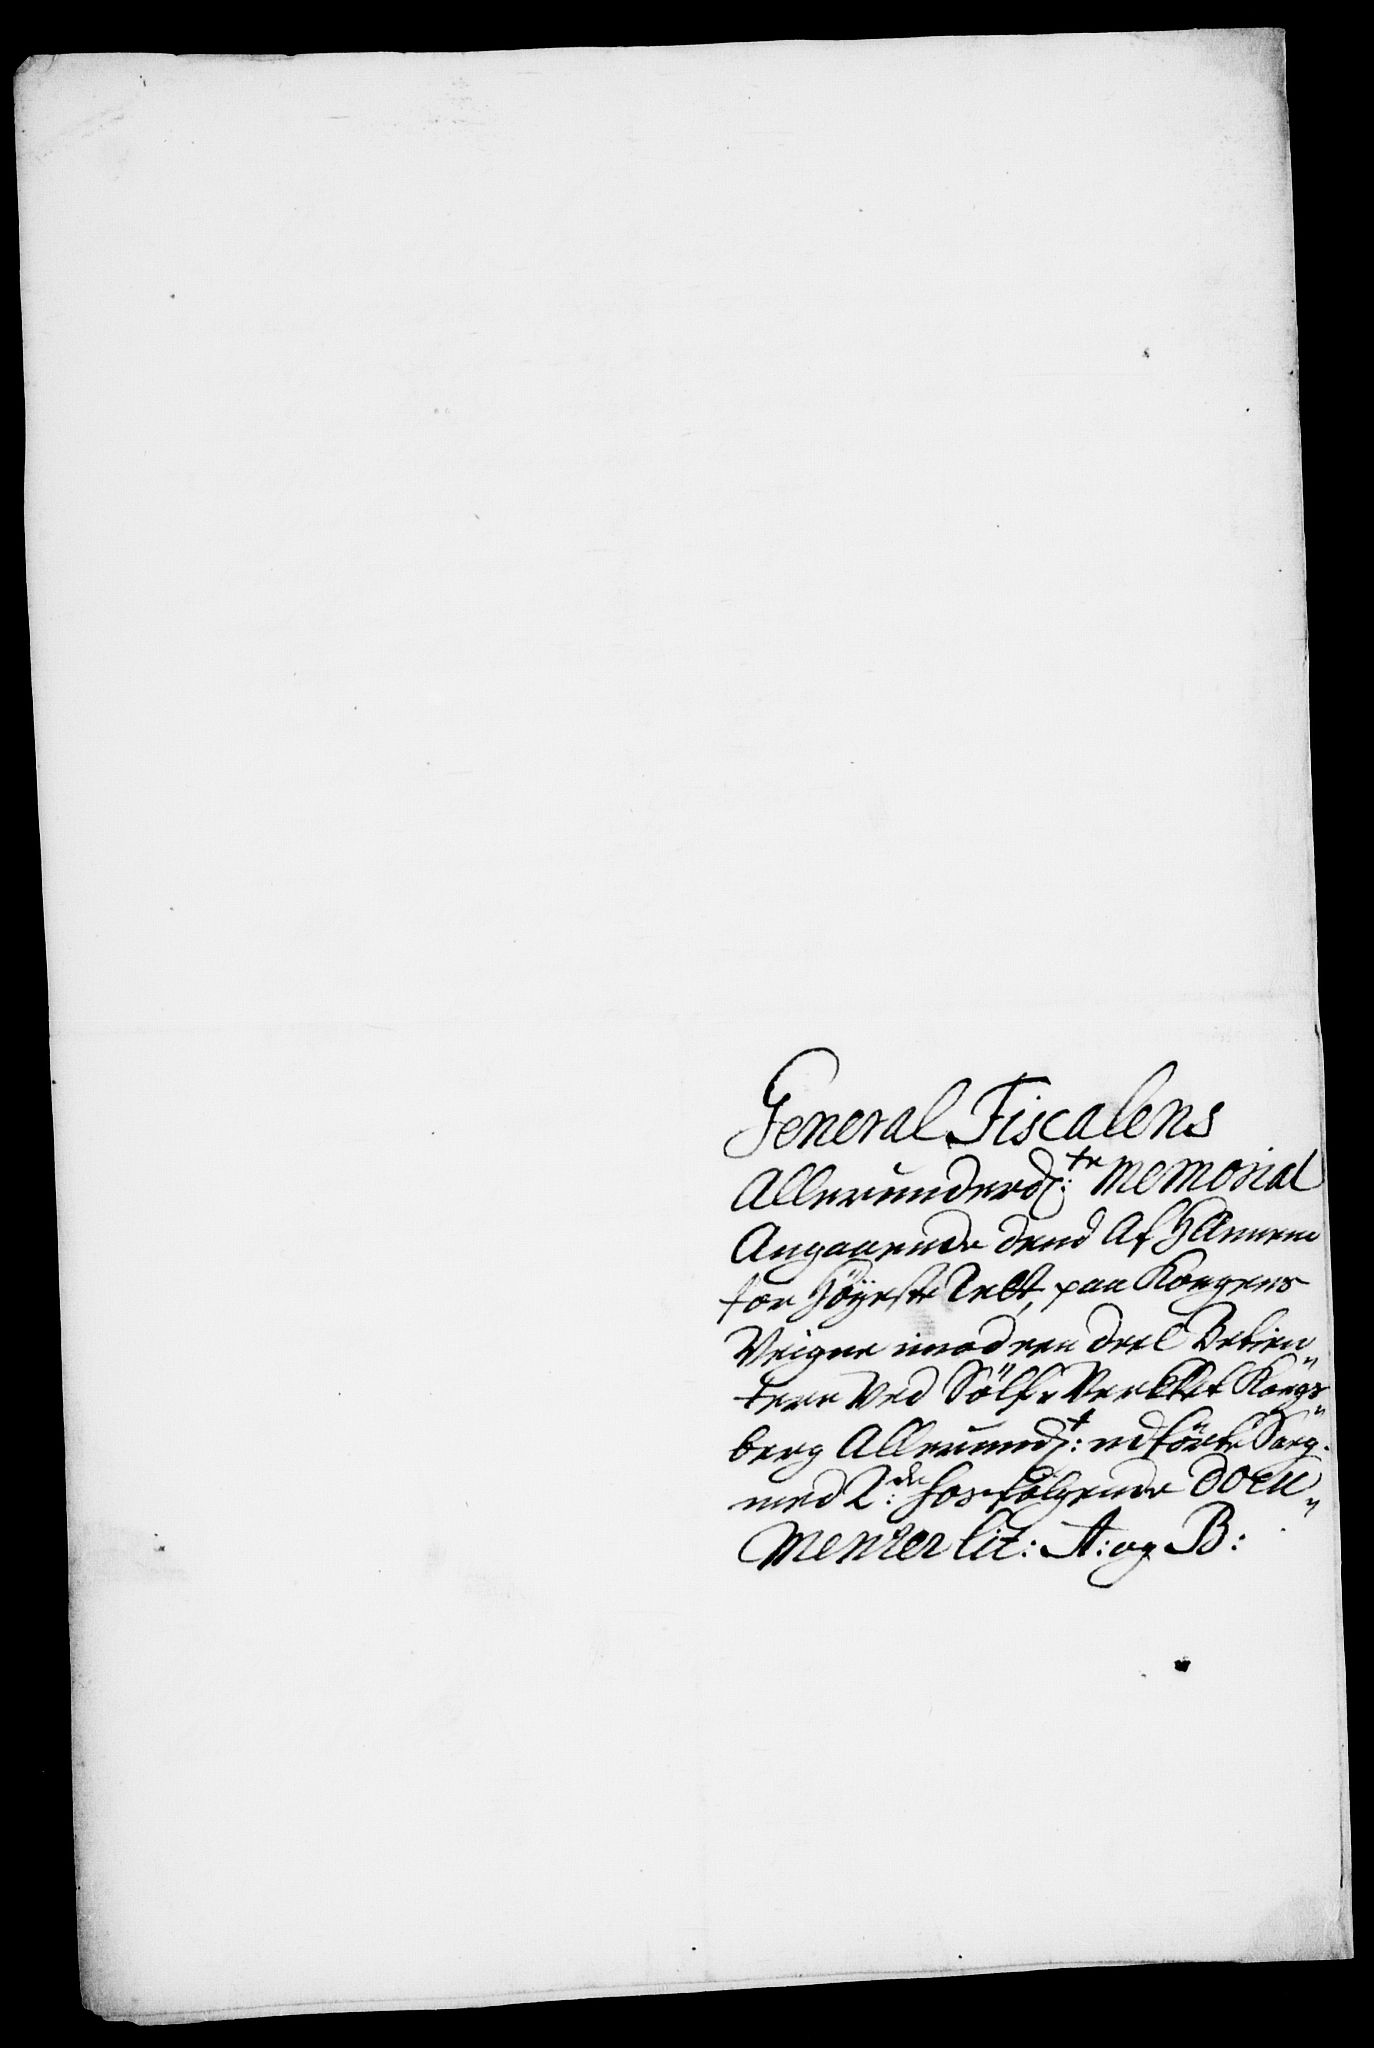 General Fiscalens
Allerunderd:te Memorial
Angaaende dend Af Hannem
for Høyeste Rett, paa Kongens
Veigne imod een deel Betien„
tere ved Sølf-Verchet Kongs„
berg Allerund:t udførte Sag.
med 2:de hosfølgende Docu„
menter Lit: A: og B: